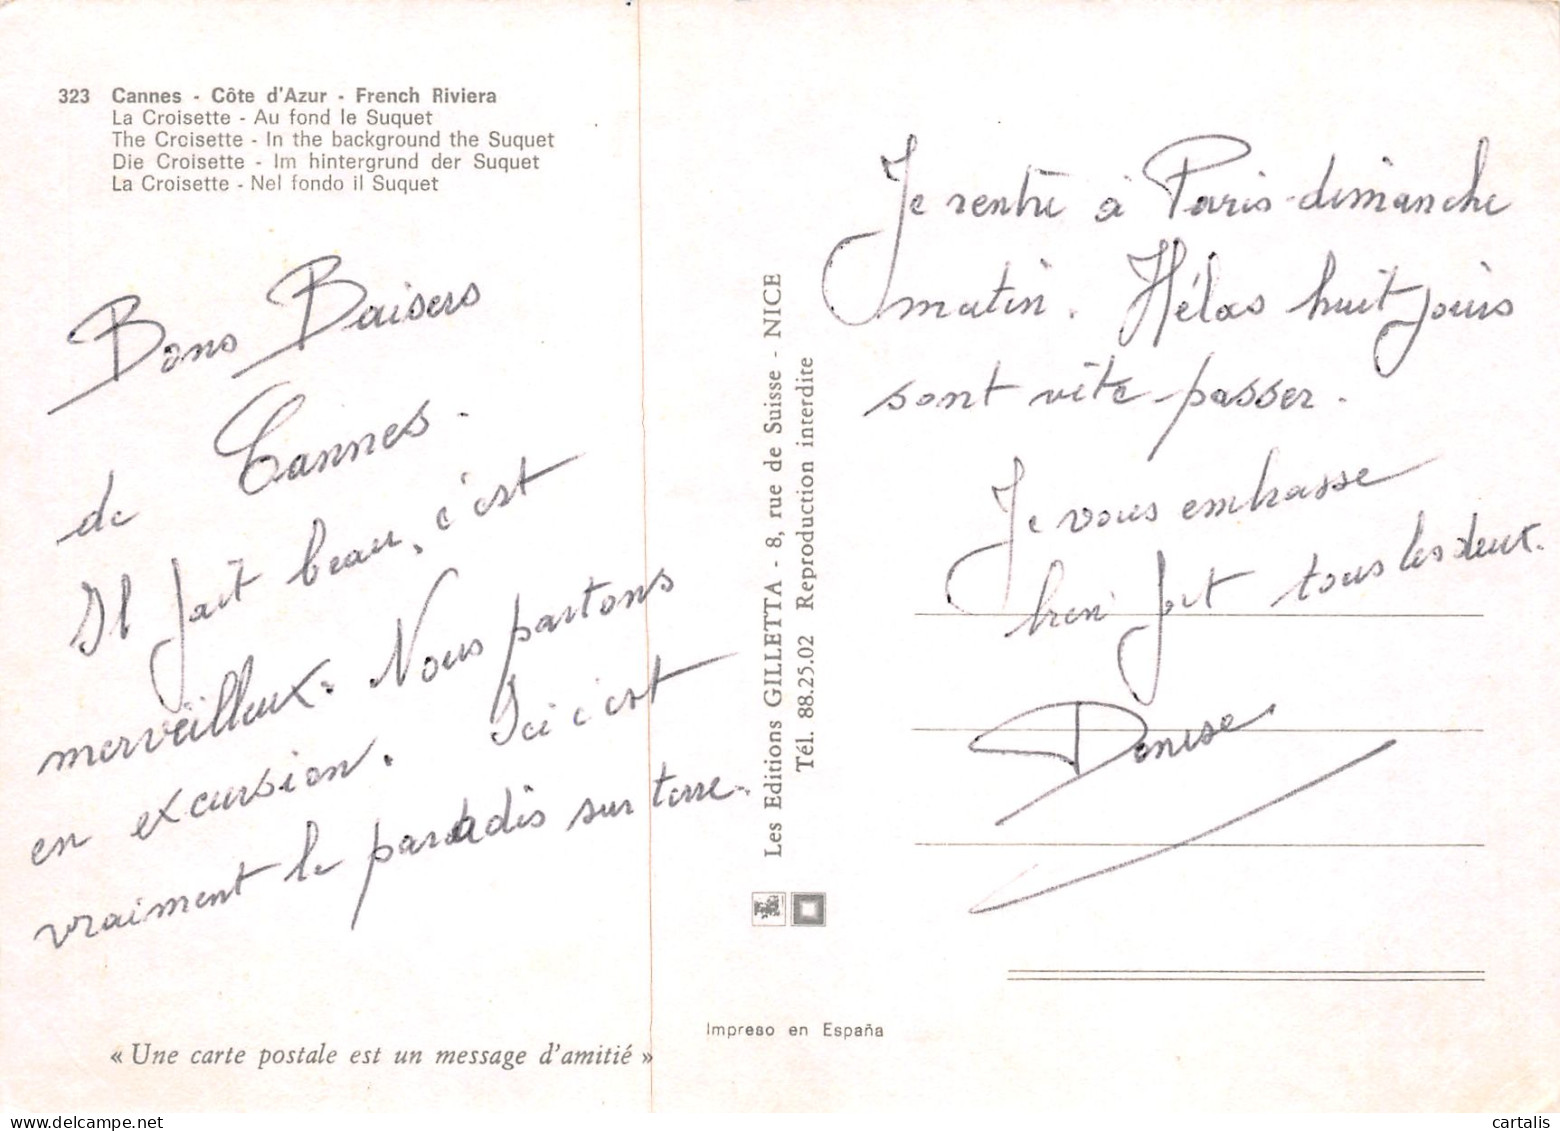 323 Cannes - Côte d'Azur - French Riviera
La Croisette - Au fond le Suquet
The Crcisette - In the background the Suquet
Die Croisette - Im hintergrund der Suquet
La Croisette - Nel fondo il Suquet
Bons Baisers
de Cannes.
Il fait beau, c'est
merveilleux. Nous partons
en excursion. Ici c'est
vraiment le paradis sur terre.
« Une carte postale est un message d'amitié »
Les Editions GILLETTA - 8, rue de Suisse - NICE
Tél. 88.25.02 Reproduction interdite
Impreso en España
Je rentre à Paris dimanche
matin. Hélas huit jours
sont vite passer.
Je vous embrasse
bien fort tous les deux.
Denise
cartalis